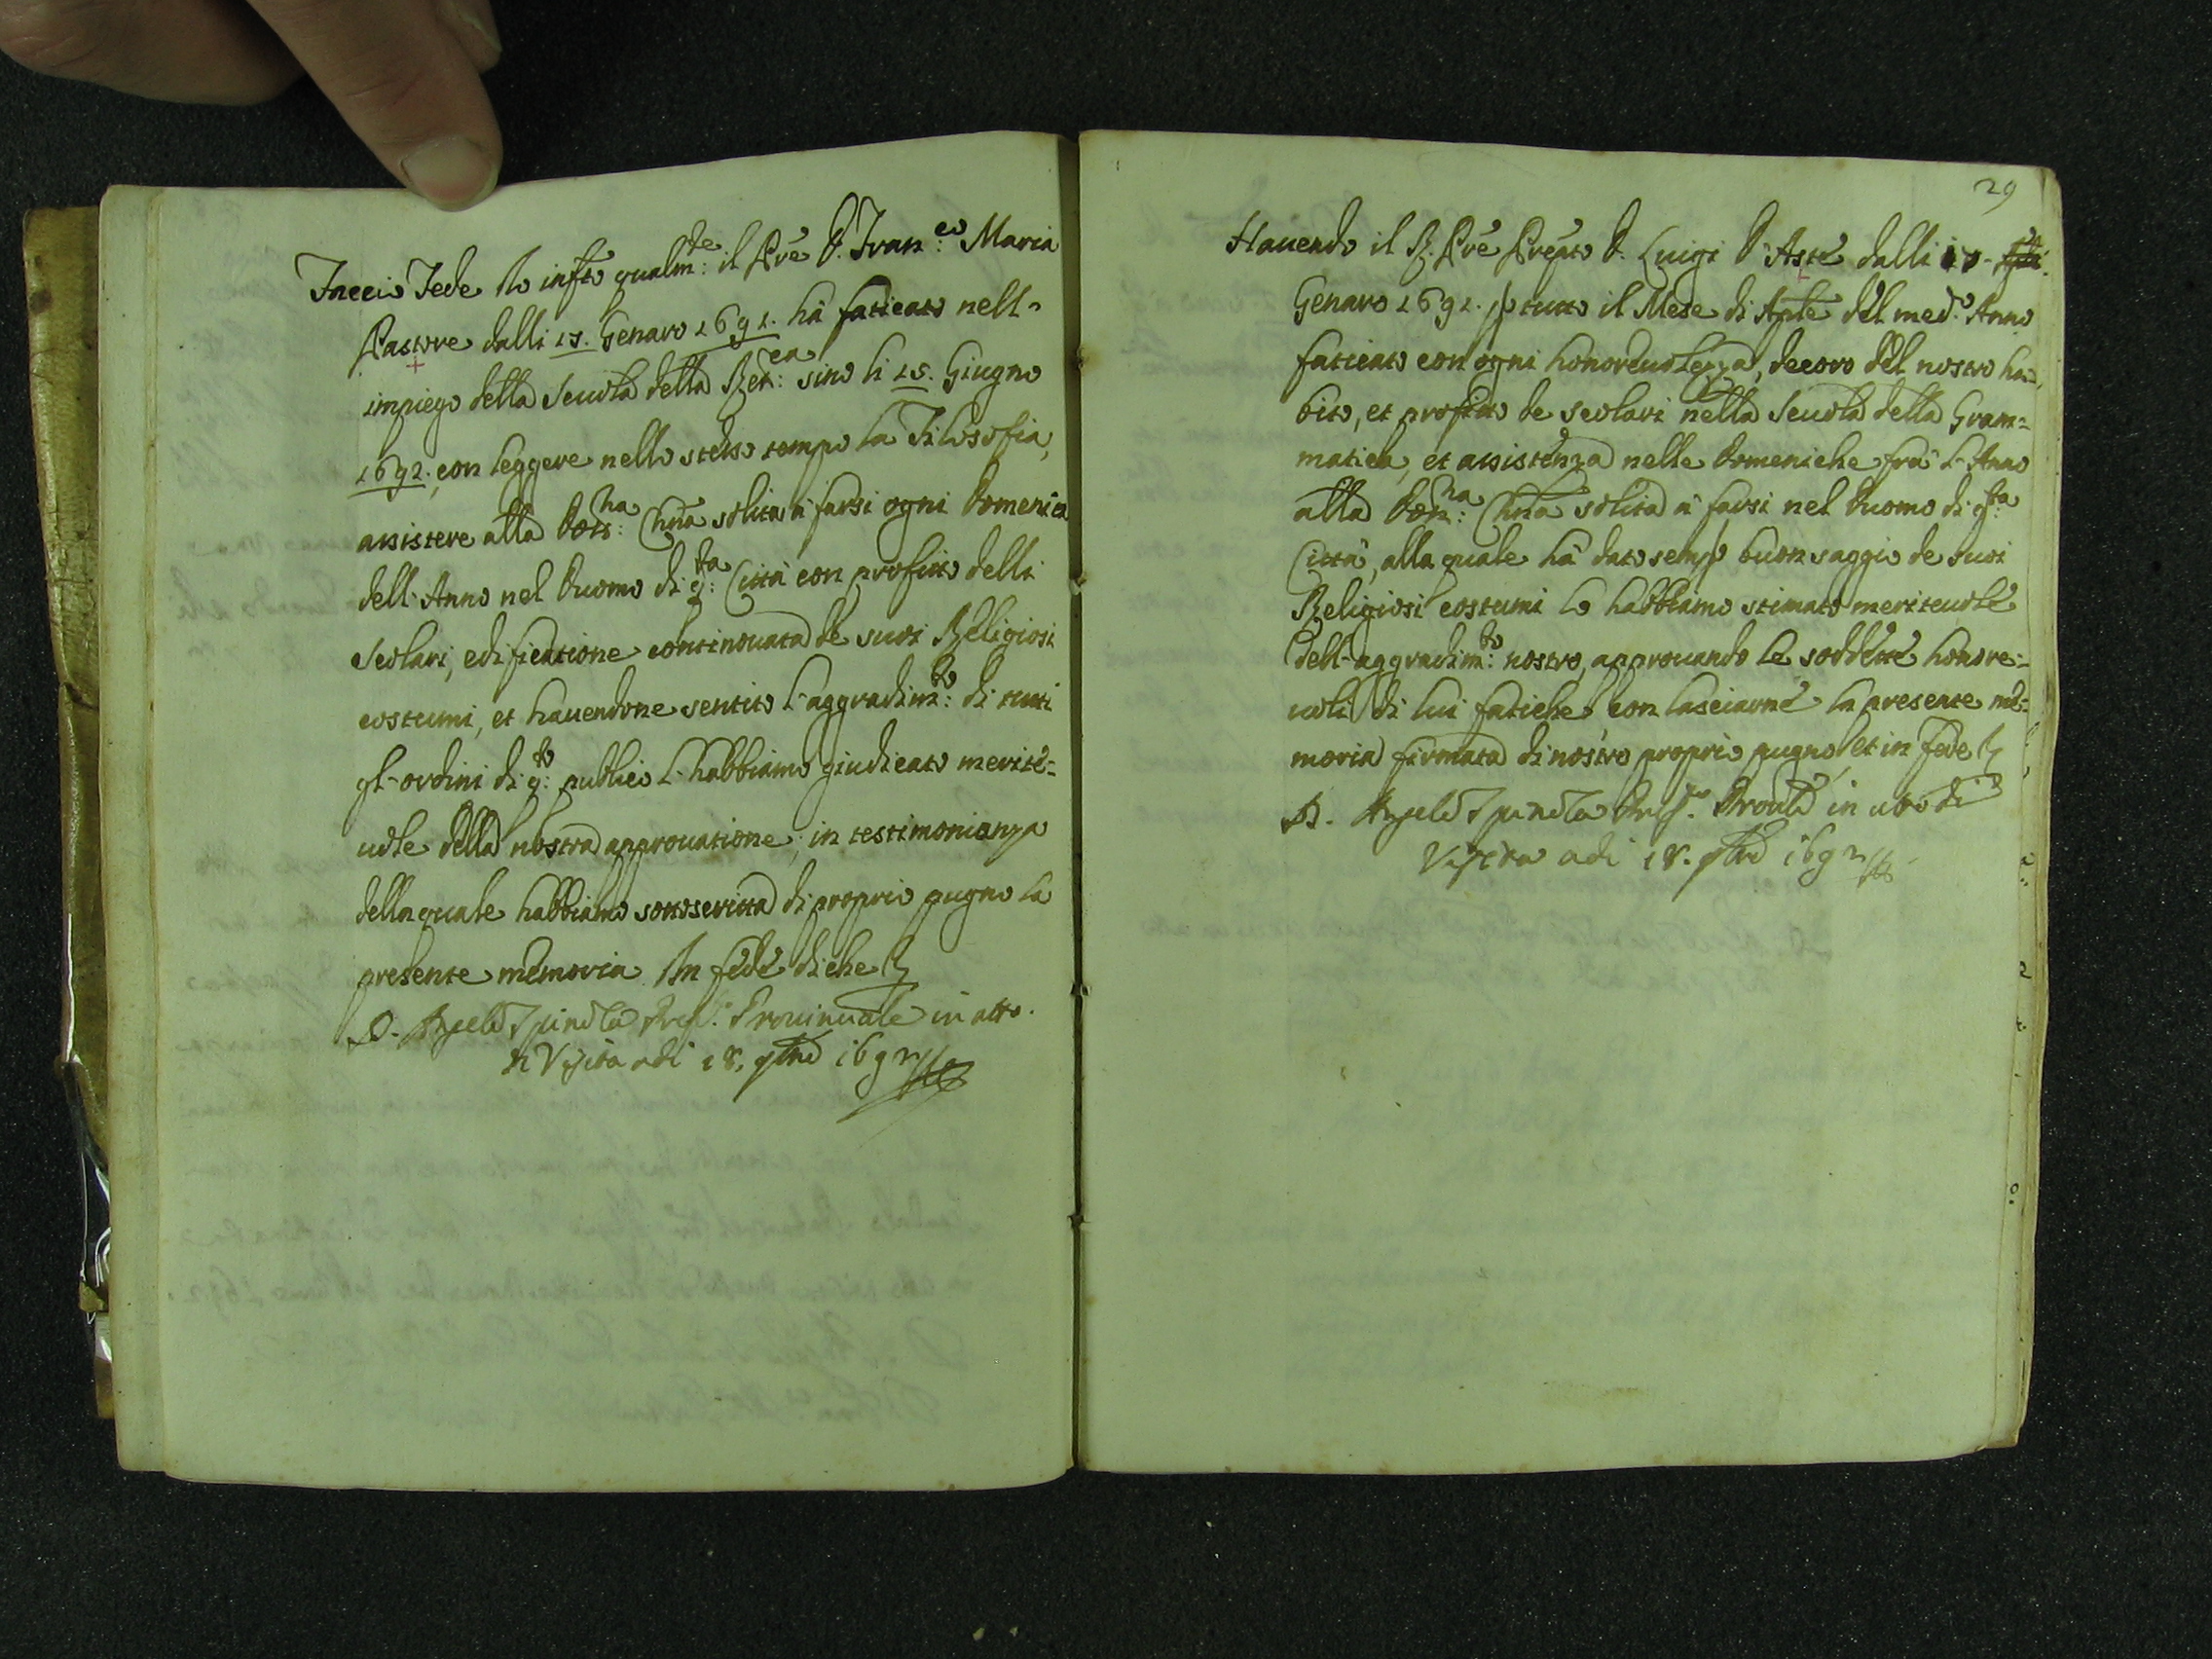 Faccio Fede Io infto qualm:te il Pre D. Fran:co Maria
Pastore dalli 15. Genaro 1691. hà faticato nell-
impiego della Scuola della Ret:ca sino li 15. Giugno
1692. con leggere nello stesso tempo la Filosofia,
assistere alla Dott:na Chna solita à farsi ogni Domenica
dell-Anno nel Duomo di q:ta Città con profitto delli
Scolari, edificatione continouata de suoi Religiosi
costumi, et hauendone sentito l-aggradim:to di tutti
gl-ordini di q:to publico l-habbiamo giudicato merite=
uole della nostra approuatione; in testimonianza
della quale habbiamo sottoscritta di proprio pugno la
presente memoria. In fede di che
D. Angelo Spinola Provinciale in atto
di Visita adi 18. 1692
29
Hauendo il R. Pre Preṗto D. Luigi D'Aste dalli
Genaro 1691. ꝑ tutto il Mese di Aple del med.o Anno
faticato con ogni honoreuolezza, decoro del nostro ha=
bito, et profitto de scolari nella Scuola della Gram=
matica, et assistenza nelle Domeniche frà l-Anno
alla Dott:na Chna solita à farsi nel Duomo di q:ta
Città, alla quale hà dato semp buon saggio de suoi
Religiosi costumi lo habbiamo stimato meriteuole
dell-aggradim:to nostro, approuando le soddette honore=
uoli di lui fatiche con lasciarne la presente me=
moria firmata di nostro proprio pugno et in fede
D. Angelo Spinola Proule in atto di
Visita adi 18. 1692